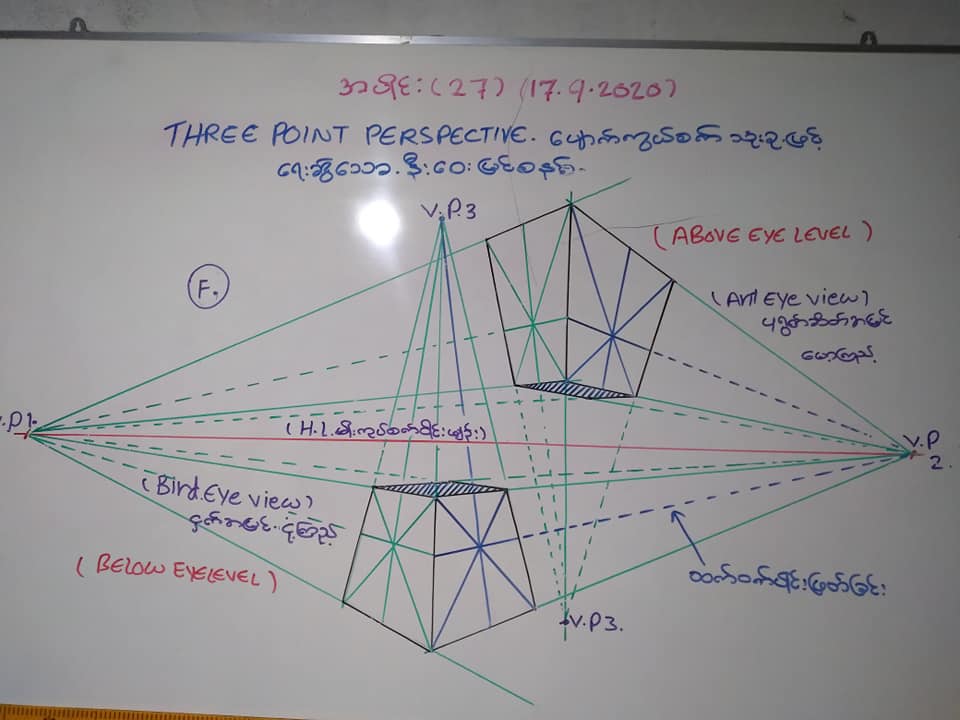 အပိုင်း (27) (17.9.2020)
THREE POINT PERSPECTIVE. ပျောက်ကွယ်စက် သုံးခုဖြင့်
ရေးဆွဲသော အနီးအဝေးမြင်စနစ်.
V.P.3
(ABOVE EYE LEVEL)
F.
(Ant Eye view)
ပုရွက်ဆိတ်အမြင်
မော့ကြည့်
V.P1.
(H.L မိုးကုပ်စက်ဝိုင်းမျဉ်း)
V.P
2.
(Bird.Eye view)
ငှက်အမြင်. ငုံ့ကြည့်
(BELOW EYELEVEL)
ထက်ဝက်ပိုင်းဖြတ်ခြင်း
V.P3.